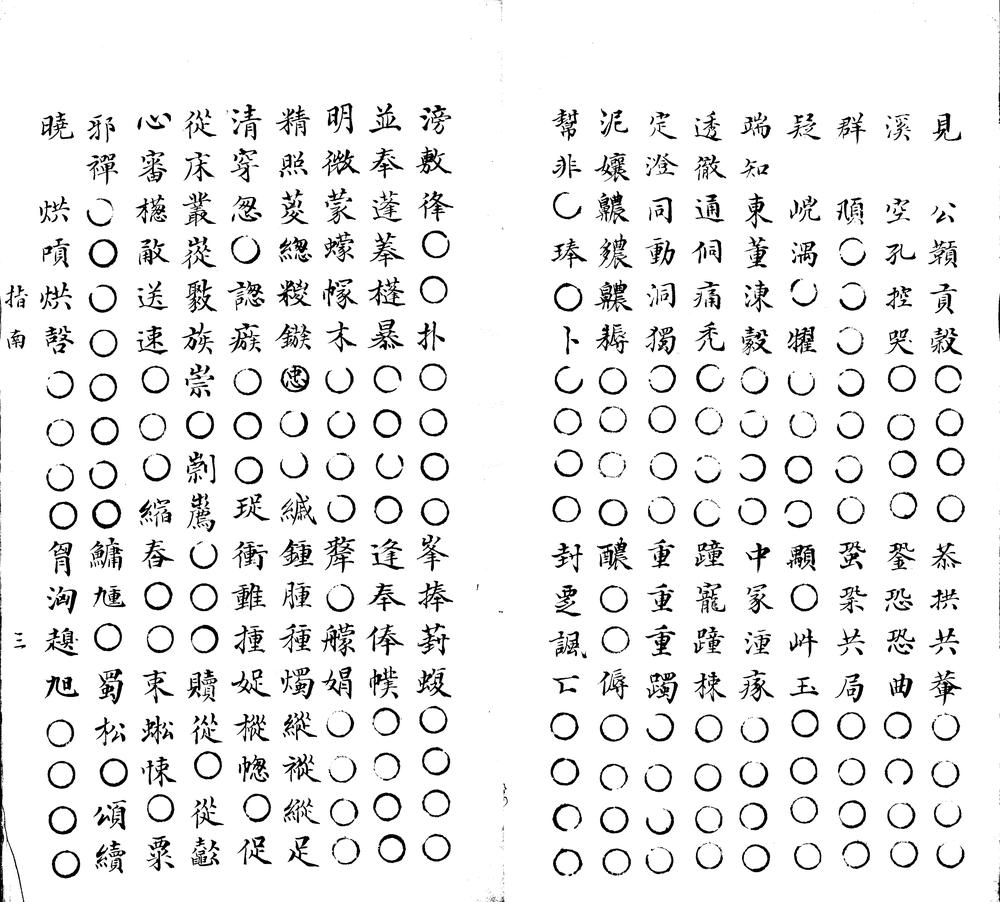 見公顜貢穀○○○○恭拱共𦸈○○○○
溪空孔控哭○○○○銎恐恐曲○○○○
群頄○○○○○○○蛩𣑁共局○○○○
疑㟅湡○㬦○○○○顒○岍玉○○○○
端知東董涷豰○○○○中冢湩瘃○○○○
透徹通侗痛禿○○○○蹱寵蹱楝○○○○
定澄同動洞獨○○○○重重重躅○○○○
泥孃齈癑齈耨○○○○醲○○傉○○○○
幫非○琫○卜○○○○封覂諷○○○○
滂敷㣭○○扑○○○○峯捧葑蝮○○○○
並奉蓬菶槰暴○○○○逢奉俸幞○○○○
明微蒙蠓幏木○○○○犎○艨娟○○○○
精照葼緫糉鏃○○緎鍾腫種燭縱樅縱足
清穿怱○謥瘯○○○珿衝㒁揰娖樅幒○促
從床叢嵸㯳族崇○剬○○○贖從○從歜
心審檧敵送速○○○縮舂○○束蜙悚○粟
邪禪○○○○○○○○鱅尰○蜀松○頌續
曉烘嗊烘㗀○○○○胷洶趮旭○○○○
指南
三